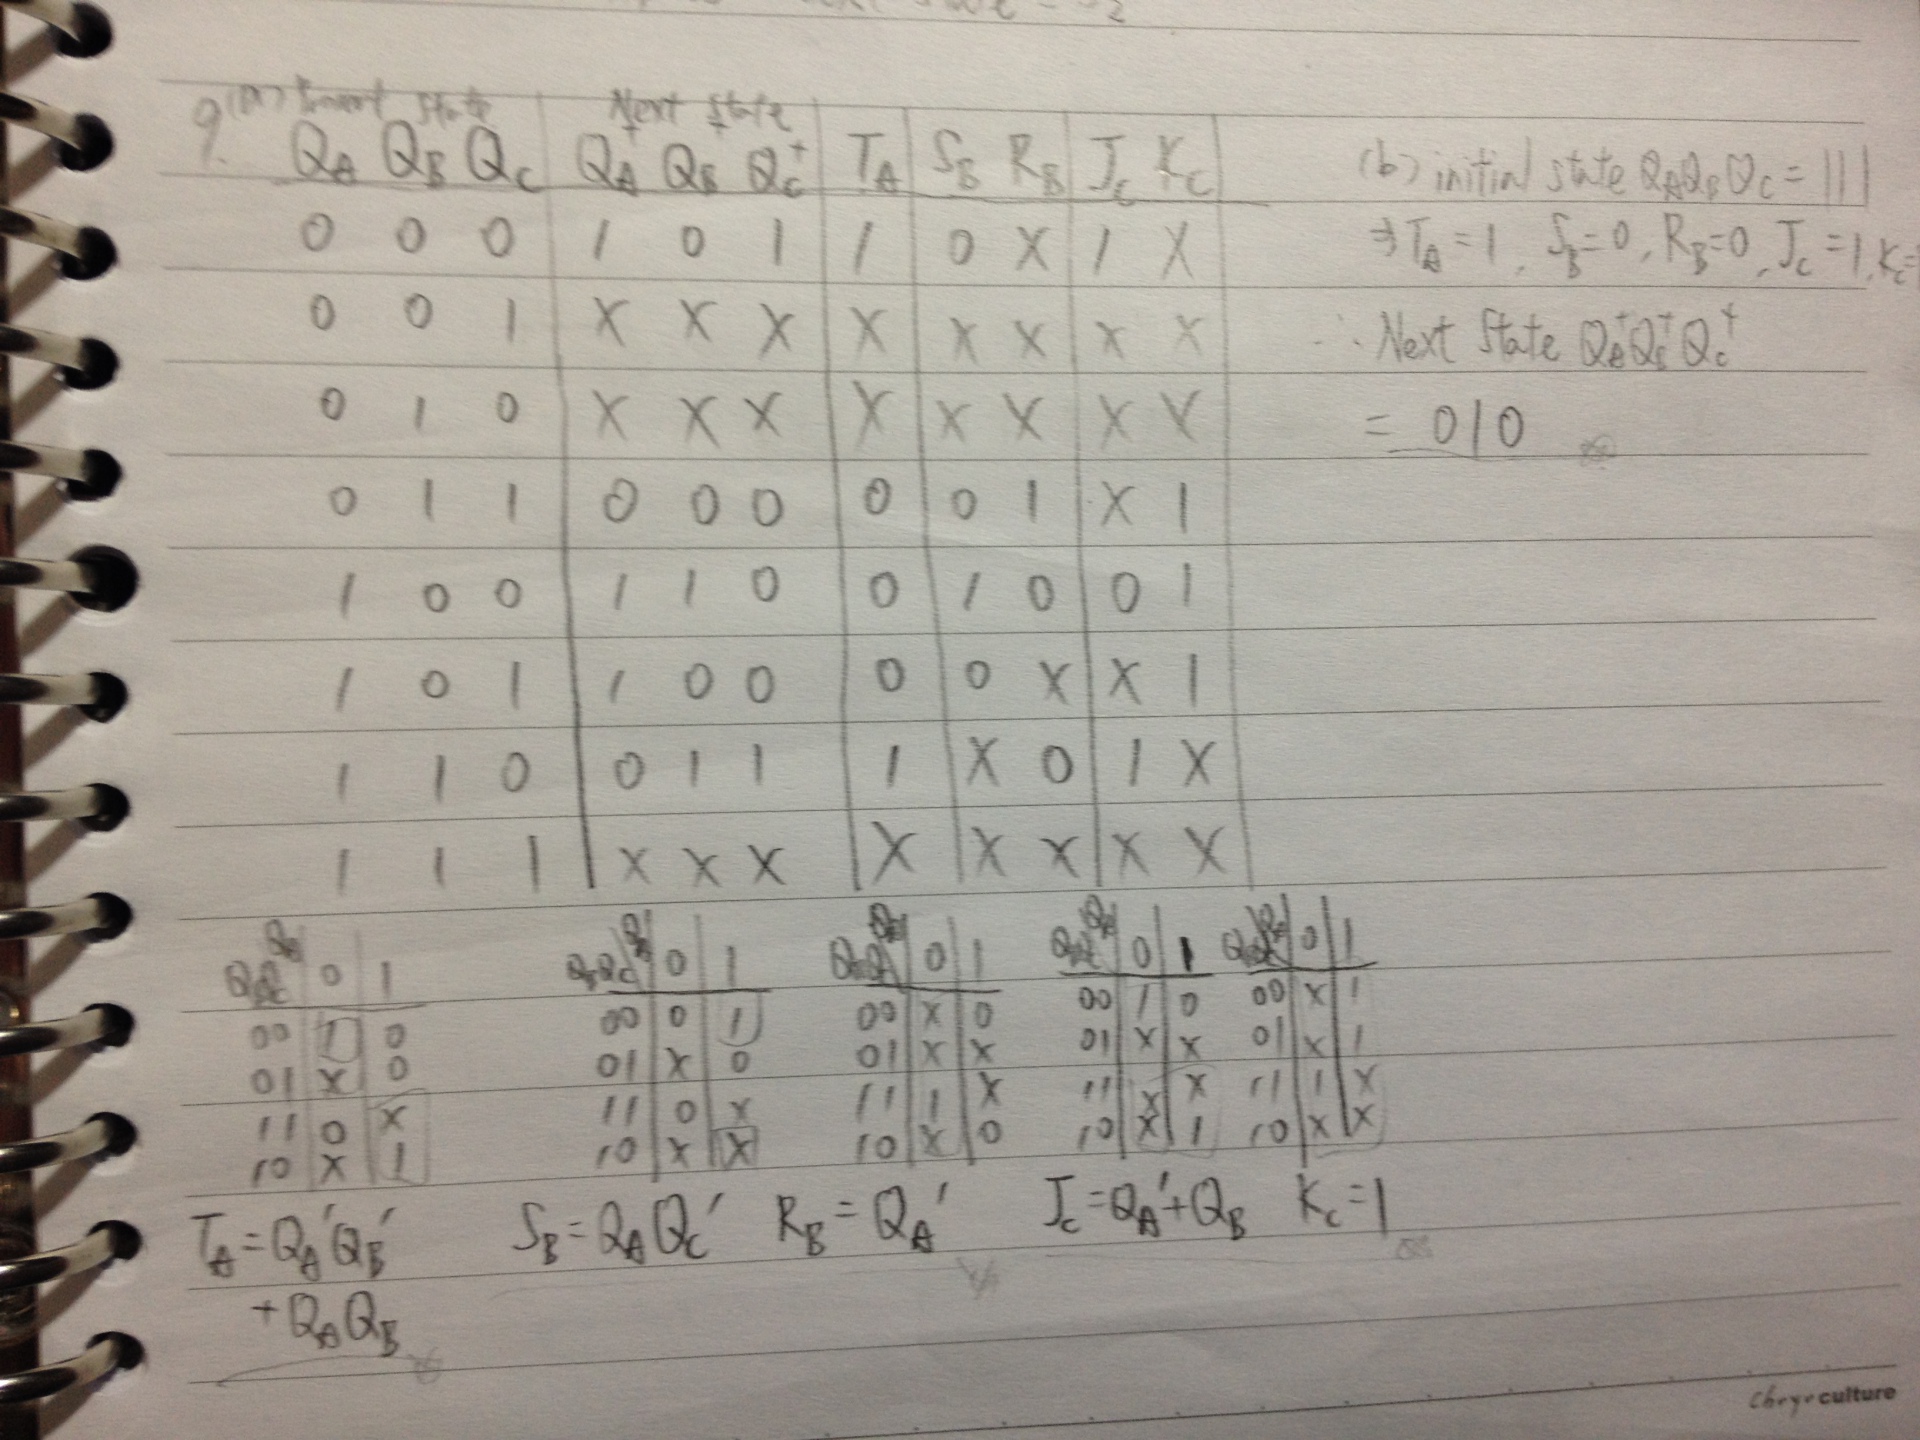 9. (a) Present State Next State
QA QB QC QA+ QB+ QC+ TA SB RB JC KC
0 0 0 1 0 1 1 0 X 1 X
0 0 1 X X X X X X X X
0 1 0 X X X X X X X X
0 1 1 0 0 0 0 0 1 X 1
1 0 0 1 1 0 0 1 0 0 1
1 0 1 1 0 0 0 0 X X 1
1 1 0 0 1 1 1 X 0 1 X
1 1 1 X X X X X X X X
(b) initial state QAQBQC = 111
⇒ TA = 1, SB = 0, RB = 0, JC = 1, KC =
∴ Next State QA+QB+QC+
= 010
QBQC QA 0 1
00 1 0
01 X 0
11 0 X
10 X 1
TA = QA'QB'
+ QAQB
QBQC QA 0 1
00 0 1
01 X 0
11 0 X
10 X X
SB = QAQC'
QBQC QA 0 1
00 X 0
01 X X
11 1 X
10 X 0
RB = QA'
QBQC QA 0 1
00 1 0
01 X X
11 X X
10 X 1
JC = QA' + QB
QBQC QA 0 1
00 X 1
01 X 1
11 1 X
10 X X
KC = 1
Choyoculture